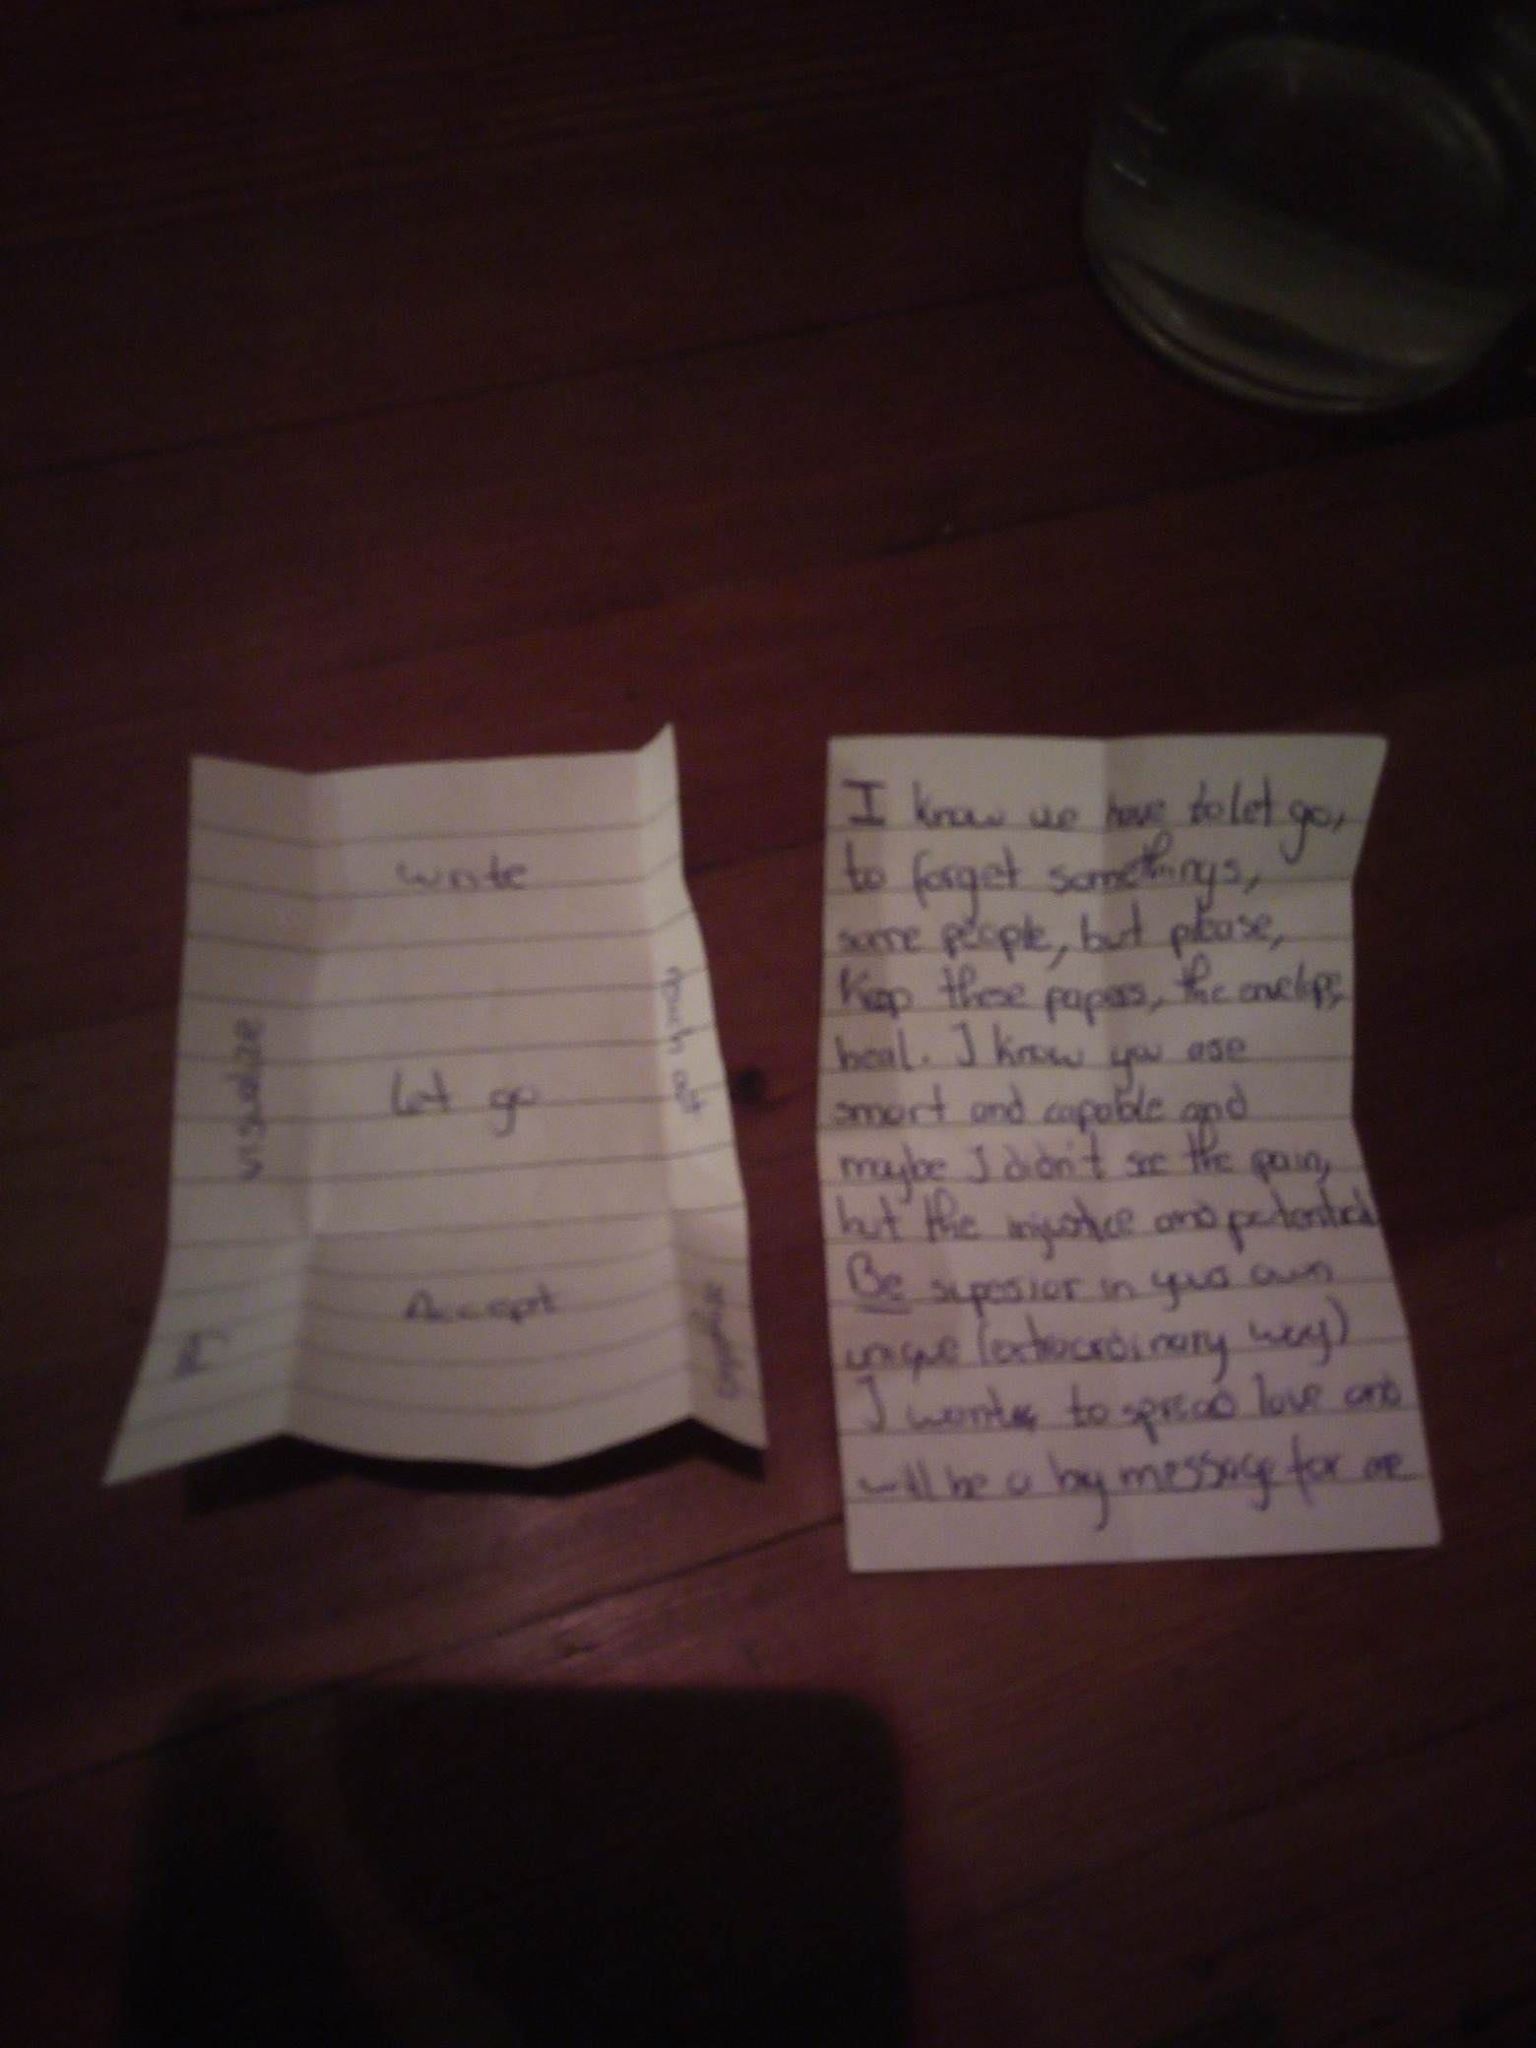 write
visualize
Let go
Accept
I know we have to let go,
to forget somethings,
some people, but please,
Keep these papers, the envelope,
heal. I know you are
smart and capable and
maybe I didn't see the pain,
but the injustice and potential
Be superior in your own
unique (extraordinary way)
I to spread love and
will be a big message for me